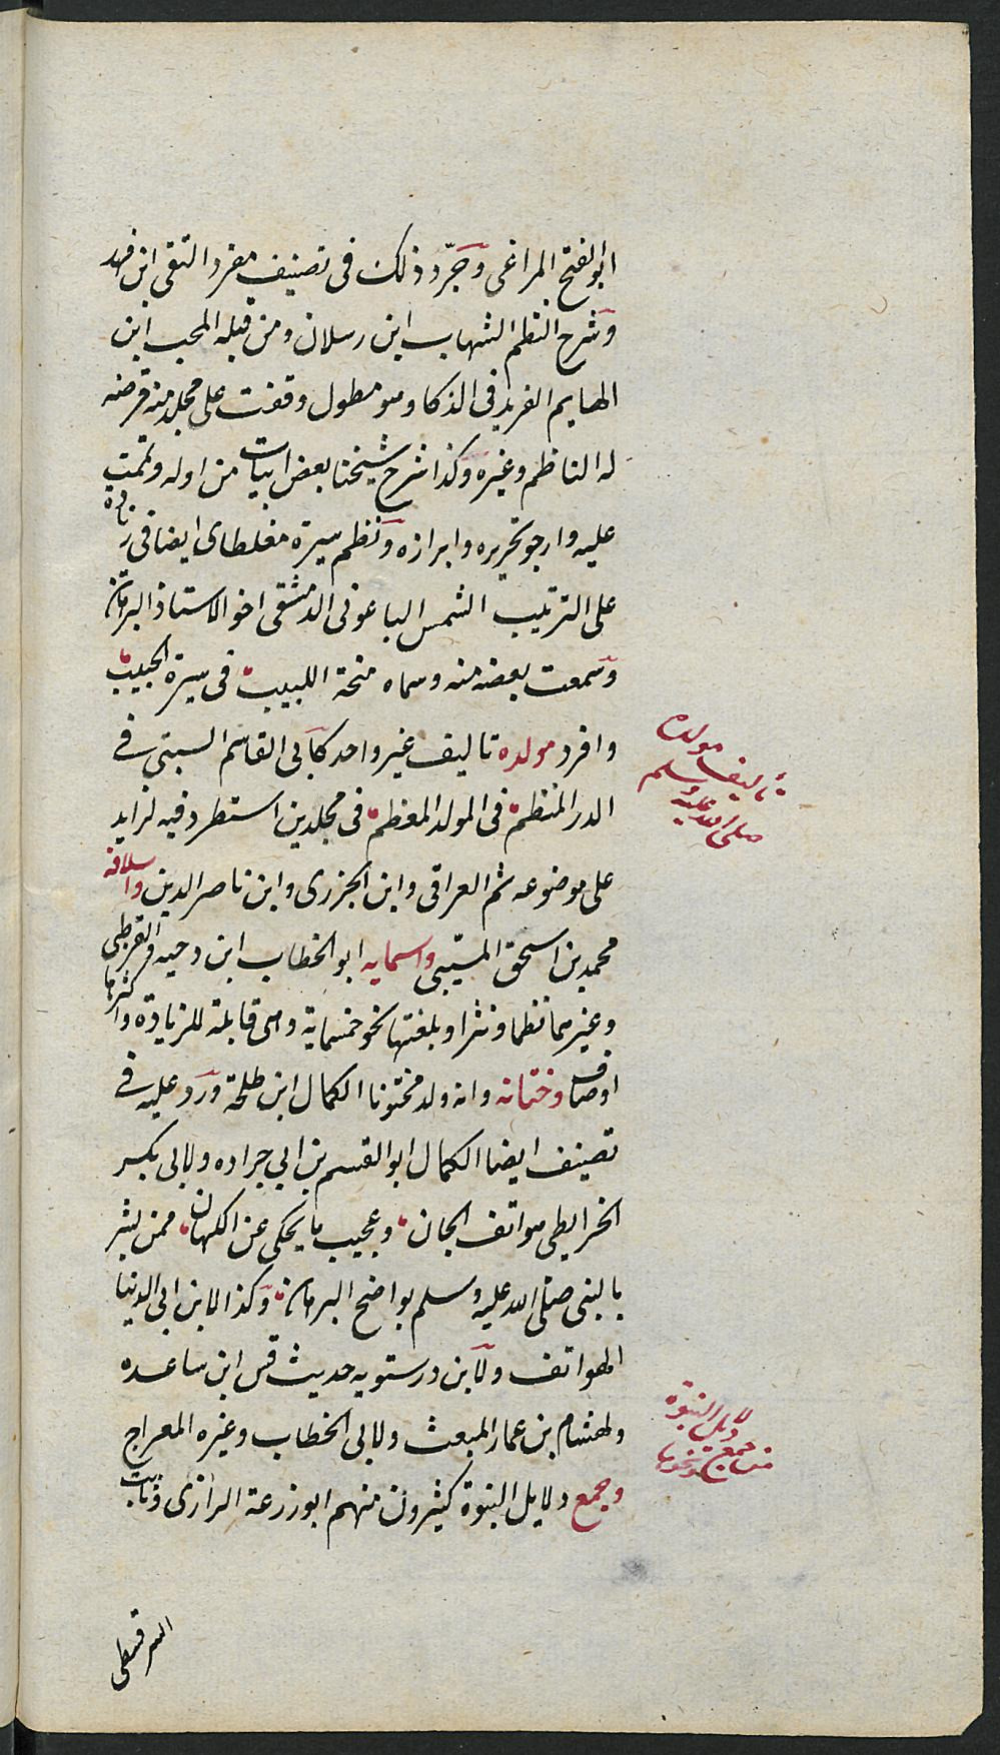 ابو الفتح المراغى وجرد ذلك فى تصنيف مفرد التقى ابن فهد
وشرح النظم الشهاب ابن رسلان ومن قبله المحب ابن
الهايم الفريد فى الذكا وهو مطول وقفت على مجلد منه قرضه
له الناظم وغيره وكذا شرح شيخنا بعض ابيات من اوله وتممت
عليه وارجو تحريره وابرازه ونظم سيرة مغلطاى ايضا فى زيادة
على الترتيب الشمس الباعونى الدمشقى اخو الاستاذ البرهان
وسمعت بعضه منه وسماه منحة اللبيب فى سيرة الحبيب
وافرد مولده تاليف غير واحد كابى القاسم السبتى فى
الدر المنظم فى المولد المعظم فى مجلدين استطرد فيه لزايد
على موضوعه ثم العراقى وابن الجزرى وابن ناصر الدين واسلافه
محمد بن اسحق المسيبى واسمايه ابو الخطاب ابن دحيه والقرطبى
وغيرهما نظما ونثرا وبلغتها نحو خمسماية وهى قابلة للزيادة واكثرها
اوصاف وختانه وانه ولد مختونا الكمال ابن طلحة ورد عليه فى
تصنيف ايضا الكمال ابو القسم بن ابي جراده ولابى بكر
الخرايطى هواتف الجان وعجيب ما يحكى عن الكهان ممن بشر
بالنبى صلى الله عليه وسلم بواضح البرهان وكذا لابن ابى الدنيا
الهواتف ولابن درستويه حديث قس ابن ساعده
ولهشام بن عمار المبعث ولابى الخطاب وغيره المعراج
وجمع دلايل النبوة كثيرون منهم ابو زرعة الرازى وثابت
السرقسطى
تاليف مولده
صلى الله عليه وسلم
دلايل النبوة